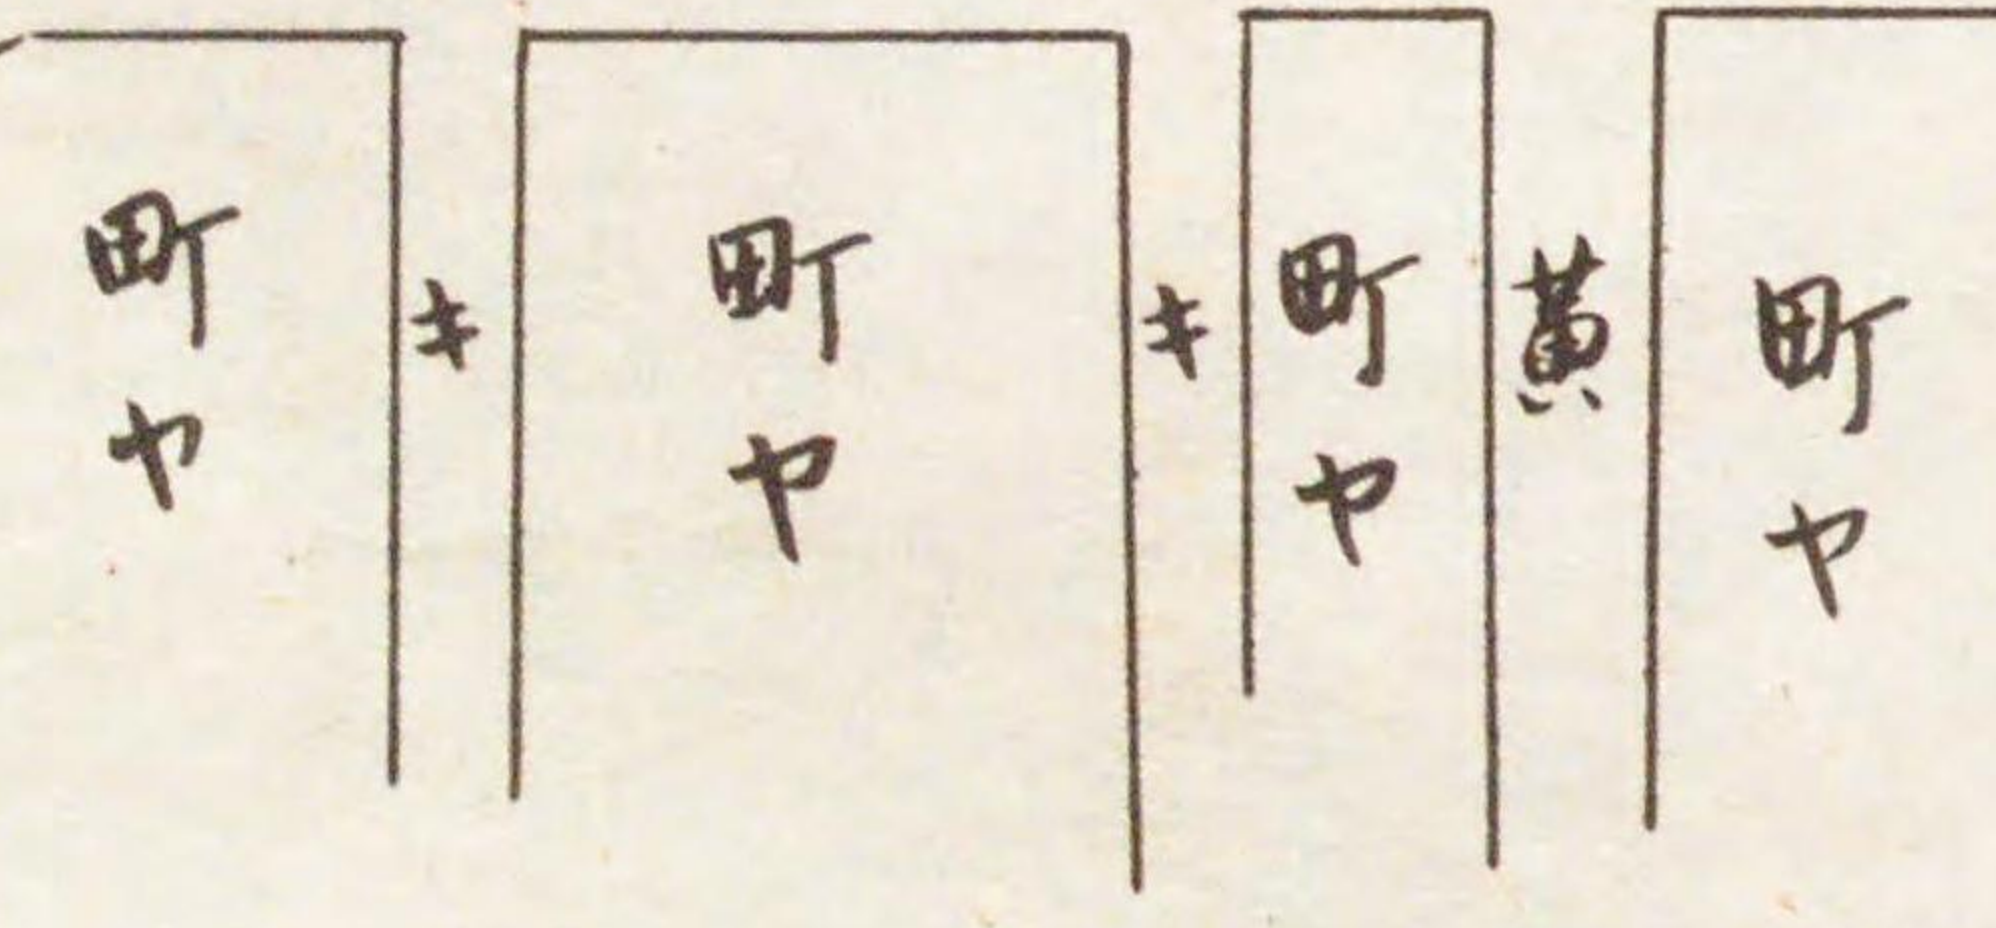 町ヤ
黄
町ヤ
キ
町ヤ
キ
町ヤ